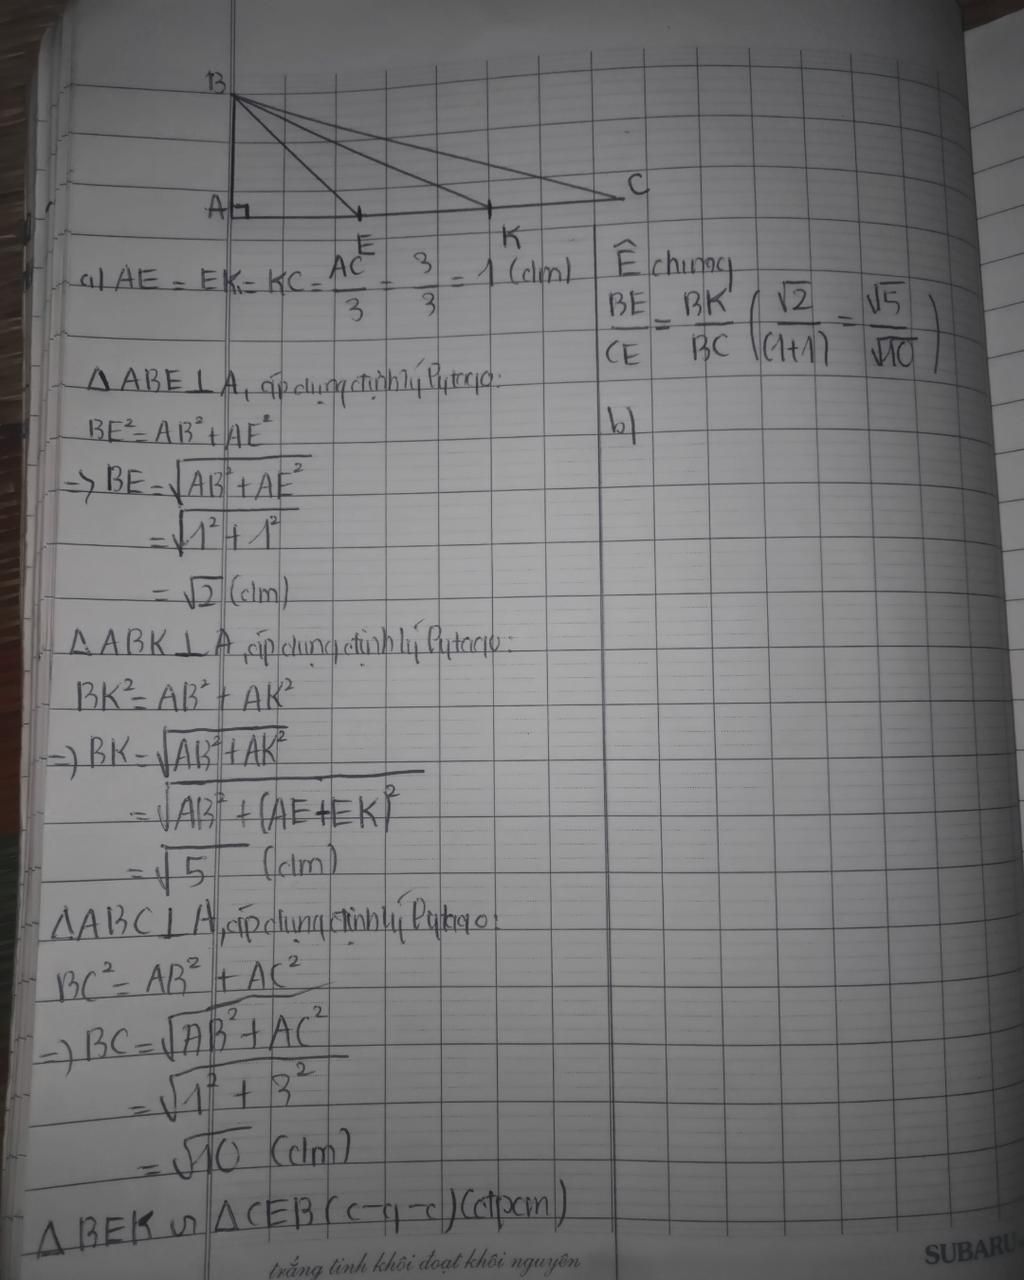 B
A
E
K
C
a) AE = EK = KC = AC/3 = 3/3 = 1 (dm)
△ABE⊥A, áp dụng định lý Pytago:
BE² = AB² + AE²
=> BE = √(AB² + AE²)
= √(1² + 1²)
= √2 (dm)
△ABK⊥A, áp dụng định lý Pytago:
BK² = AB² + AK²
=> BK = √(AB² + AK²)
= √(AB² + (AE+EK)²)
= √5 (dm)
△ABC⊥A, áp dụng định lý Pytago:
BC² = AB² + AC²
=> BC = √(AB² + AC²)
= √(1² + 3²)
= √10 (dm)
△BEK ∽ △CEB (c-g-c) (đpcm)
Ê chung
BE/CE = BK/BC (√2/(1+1) = √5/√10)
b)
trắng tinh khôi đoạt khôi nguyên
SUBARU